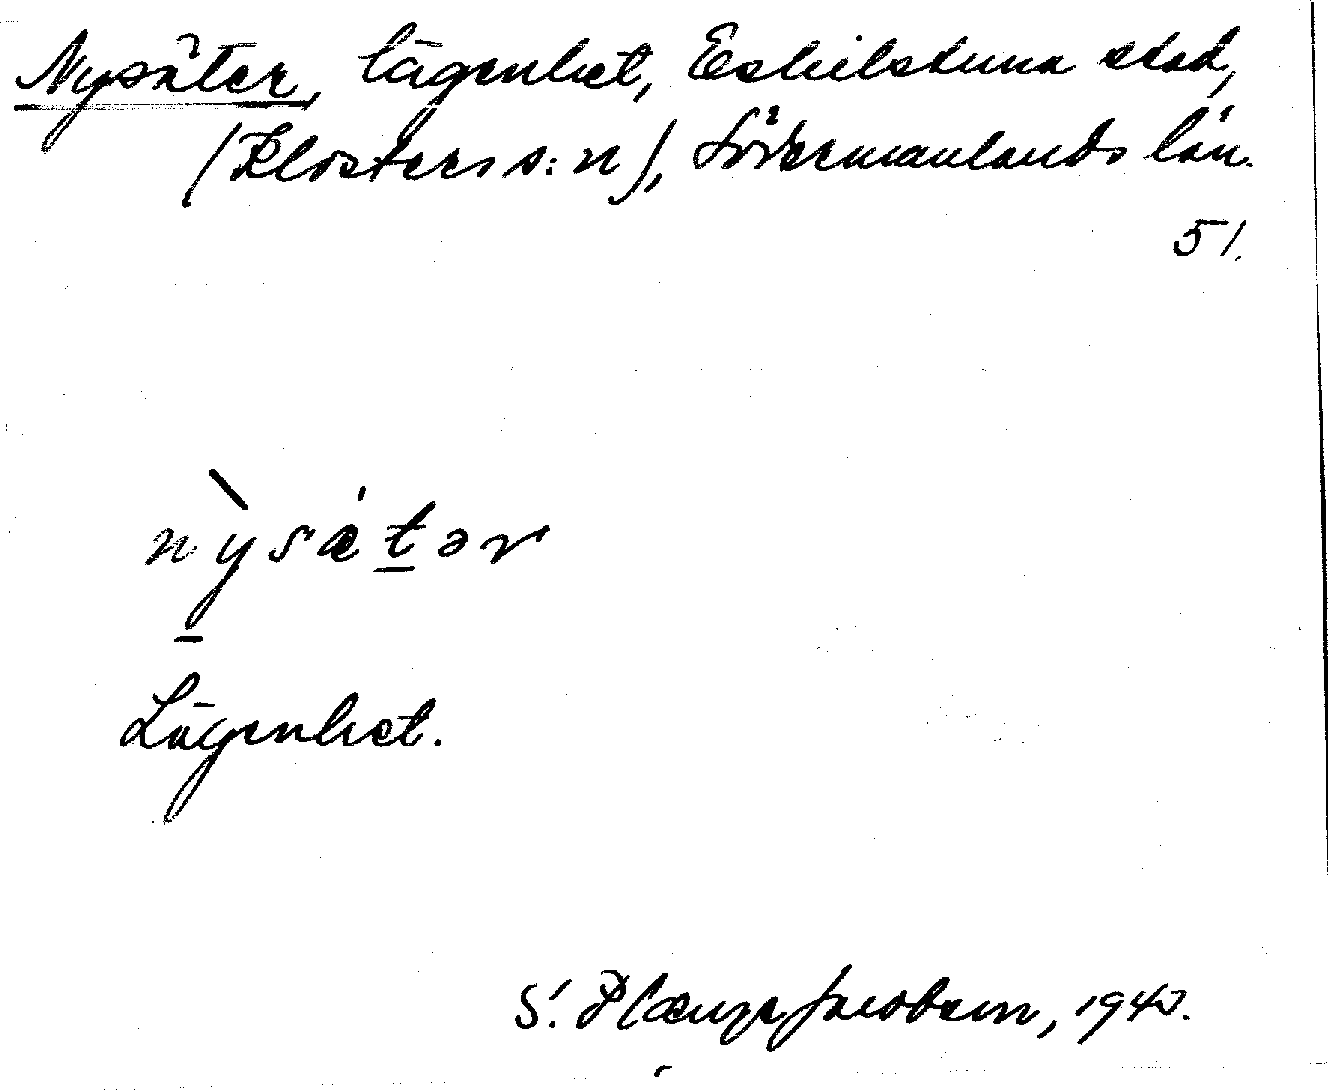 Nysäter, lägenhet, Eskilstuna stad,
(Klosters s:n), Södermanlands län.
51.
nỳsǽtər
Lägenhet.
S. 1940.